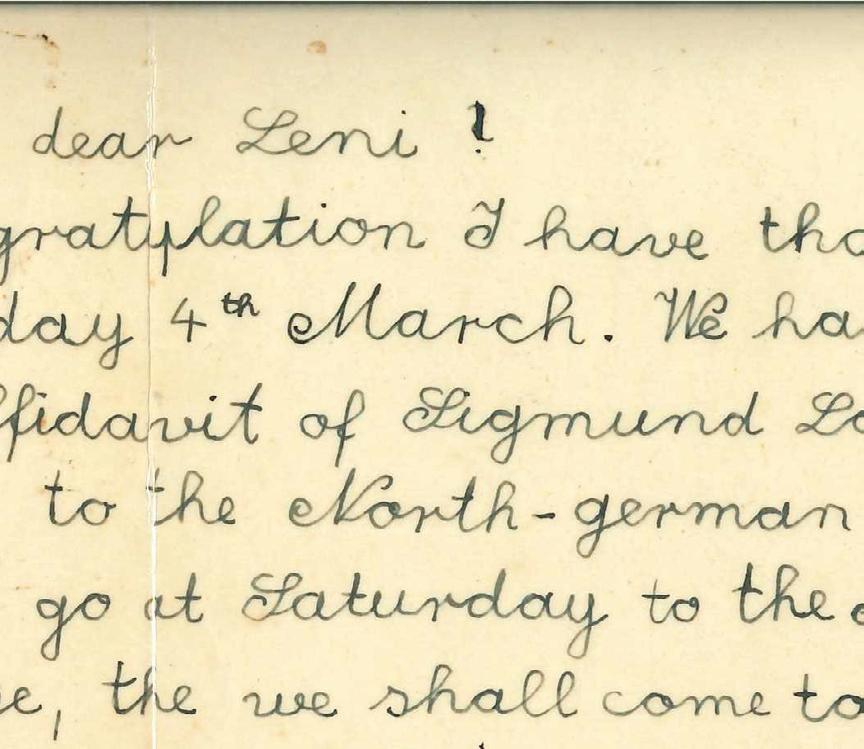 dear Leni !
gratulation I have tha
day 4th March. We ha
ffidavit of Sigmund Lo
to the North-german
go at Saturday to the
e, the we shall come to